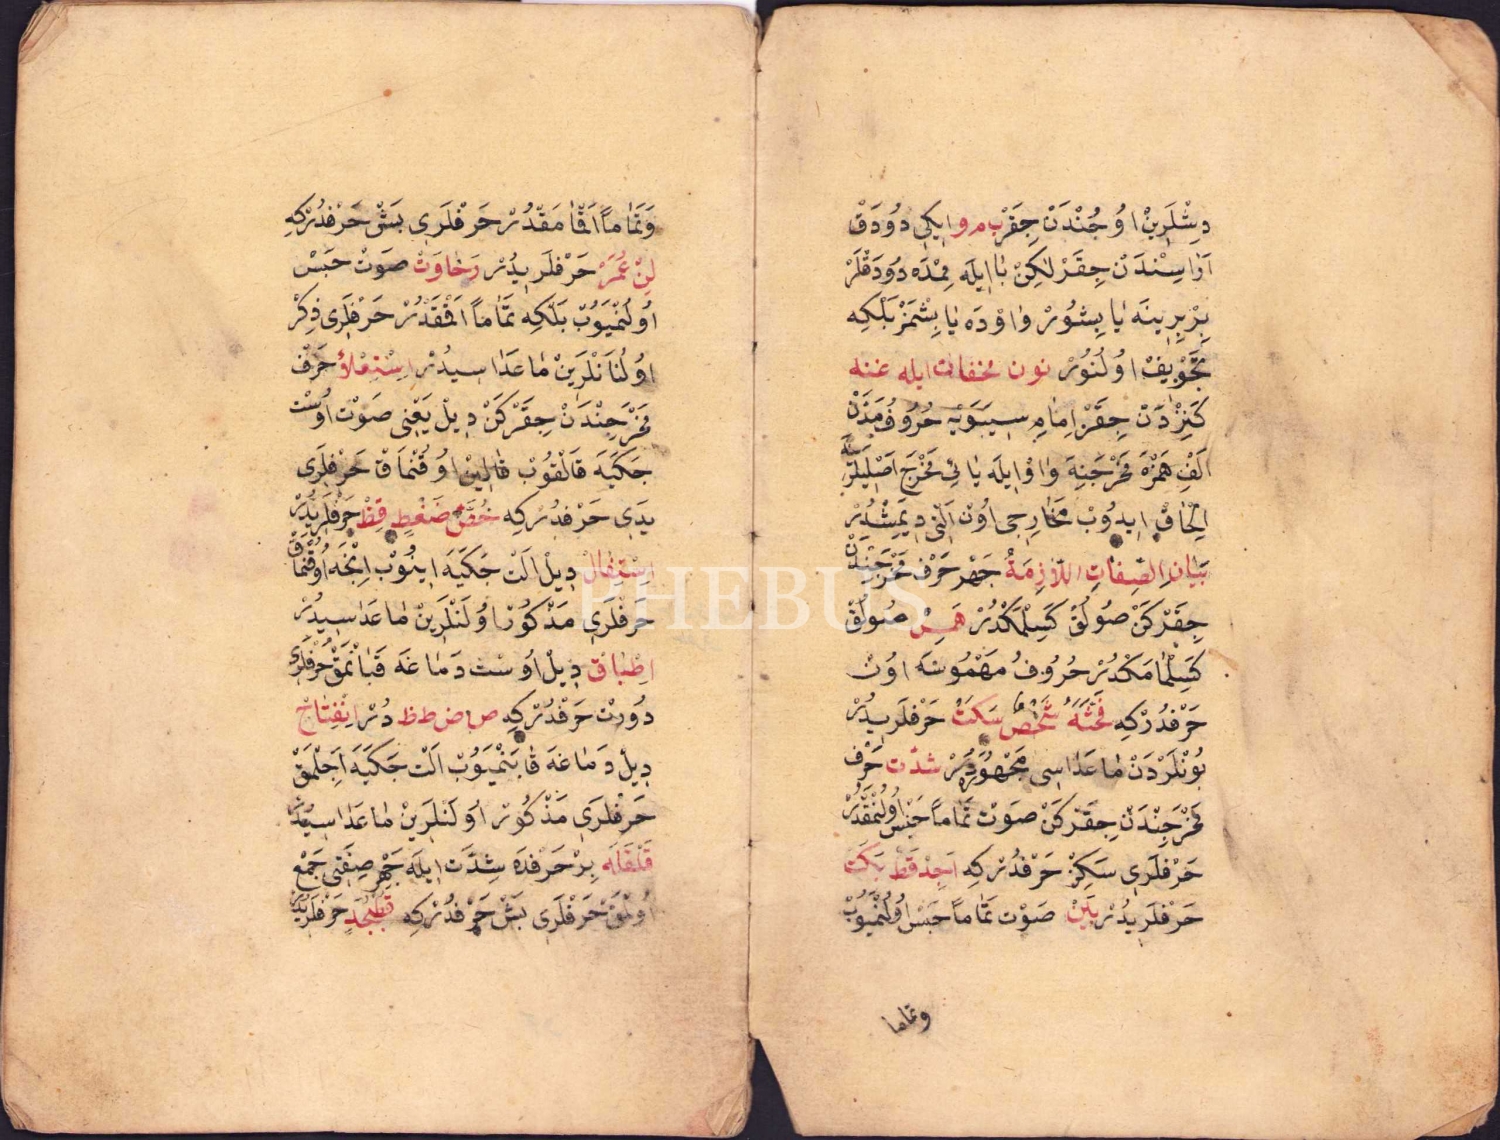 دِشْلَرِيْنْ اُوجُنْدَنْ جِقَرْ ب م و ايكِي دُودَقْ
اَرَاسِنْدَنْ جِقَرْ لٰكِنْ بَا ايلَه مِيْمدَه دُودَقْلَرْ
بِرْبِرِينَه يَاپِشُورْ وَاوْدَه يَاپِشْمَزْ بَلْكِه
تَجْوِيفْ اُولُنُورْ نون مخفات ايله غنه
كَنِزْدَنْ جِقَرْ اِمَامِ سِيبَوَيْه حُرُوفُ مَدْدَنْ
اَلِفِ هَمْزَه مَخْرَجِنَه وَاوْ ايلَه يَائِي مَخْرَجِ اَصْلِيلَرِنَه
اِلْحَاقْ ايدُوبْ مَخَارِجِي اُونْ اَلْتِي دِيمِشْدُرْ
بَيَانِ الصِّفَاتِ اللَّازِمَةِ جَهْر حَرْف مَخْرَجِنْدَنْ
جِقَرْكَنْ صُولُقْ كَسِلْمَكْدُرْ هَمِسْ صُولُقْ
كَسِلْمَامَكْدُرْ حُرُوفُ مَهْمُوسَه اون
حَرْفدُرْكِه فَحَثَّهُ شَخْصٌ سَكَتْ حَرْفلَرِيدُرْ
بُونْلَرْدَنْ مَاعَدَاسِي مَجْهُورَه دُرْ شدّت حَرْف
مَخْرَجِنْدَنْ جِقَرْكَنْ صَوْت تَمَاماً حَبْس اُولُنْمَقْدُرْ
حَرْفلَرِي سَكِزْ حَرْفدُرْكِه اَجِدْ قَطٍ بَكَتْ
حَرْفلَرِيدُرْ بَيْنْ صَوْت تَمَاماً حَبْس اُولُنْمَيُوبْ
وتماما
وَتَمَاماً اَقْمَامَقْدُرْ حَرْفلَرِي بَشْ حَرْفدُرْكِه
لِنْ عُمَرْ حَرْفلَرِيدُرْ رَخَاوَتْ صَوْت حَبْس
اُولُنْمَيُوبْ بَلْكِه تَمَاماً اَقْمَقْدُرْ حَرْفلَرِي ذِكْرْ
اُولُنَانْلَرِينْ مَاعَدَاسِيدُرْ اِسْتِعْلَاء حَرْف
مَخْرَجِنْدَنْ جِقَرْكَنْ دِيلْ يَعْنِي صَوْت اُوسْت
جَكَيَه قَالْقُوبْ قَالِينْ اُوقُنْمَاقْ حَرْفلَرِي
يَدِي حَرْفدُرْكِه خُصَّ ضَغْطٍ قِظْ حَرْفلَرِيدُرْ
اِسْتِفَالْ دِيلْ اَلْت جَكَيَه اِينُوبْ اِنْجَه اُوقُنْمَاقْ
حَرْفلَرِي مَذْكُور اُولَنْلَرِينْ مَاعَدَاسِيدُرْ
اِطْبَاقْ دِيلْ اُوسْت دَمَاغَه قَپَانْمَقْ حَرْفلَرِي
دُورْت حَرْفدُرْكِه ص ض ط ظ دُرْ اِنْفِتَاحْ
دِيلْ دَمَاغَه قَاپَنْمَيُوبْ اَلْت جَكَيَه اَجِلْمَقْ
حَرْفلَرِي مَذْكُورْ اُولَنْلَرِينْ مَاعَدَاسِيدُرْ
قَلْقَلَه بِرْ حَرْفدَه شِدَّت ايلَه جَهْر صِفَتِي جَمْع
اُولْمَقْ حَرْفلَرِي بَشْ حَرْفدُرْكِه قُطُبُجَدٍ حَرْفلَرِيدُرْ
PHEBUS